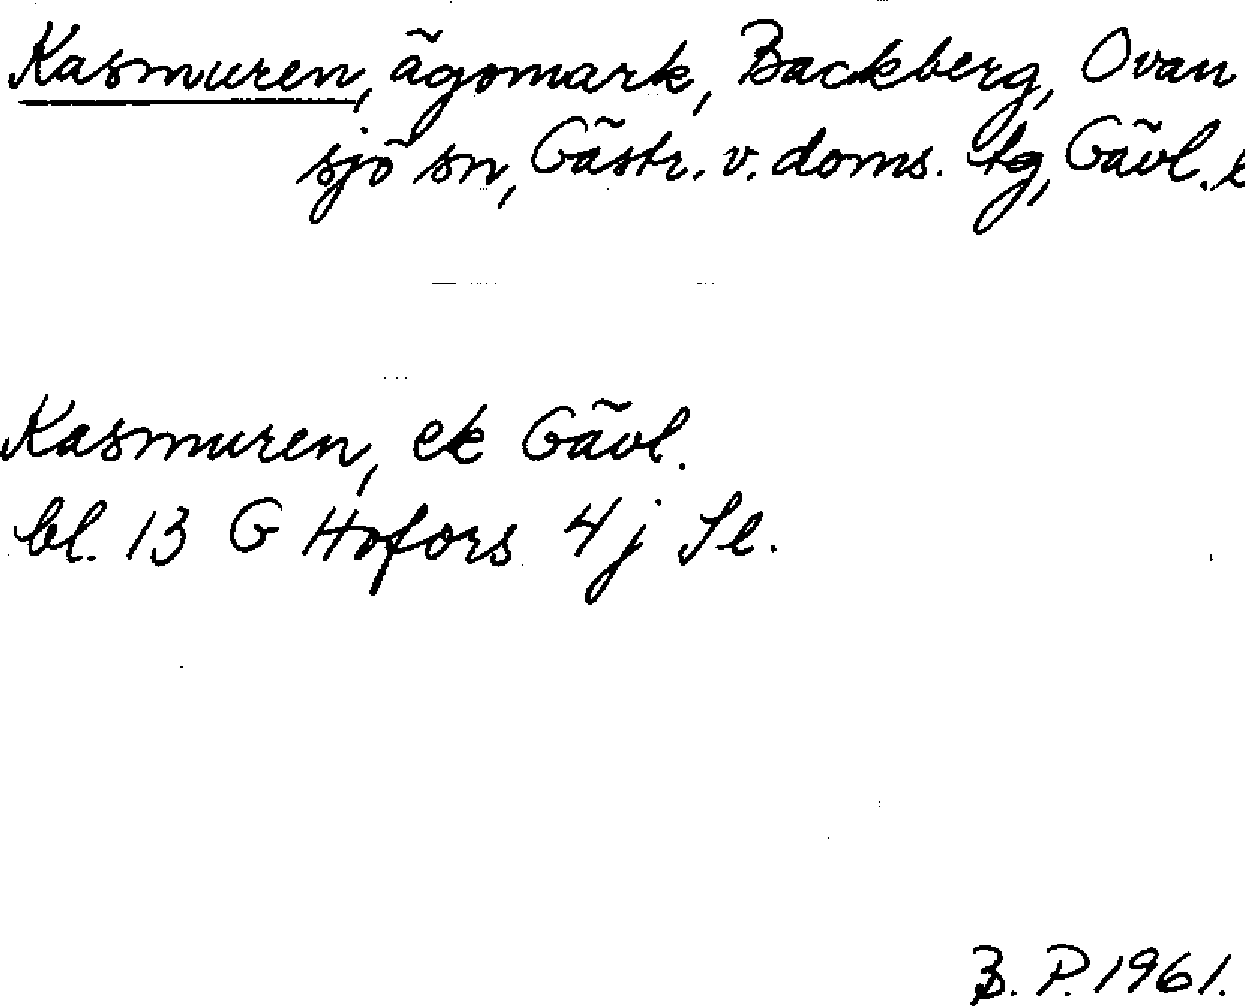 Kasmuren, ägomark, Backberg, Ovan
sjö sn, Gästr. v. doms. tg, Gävl. l
Kasmuren, ek Gävl.
bl. 13 G Hofors 4j Sl.
B. P. 1961.